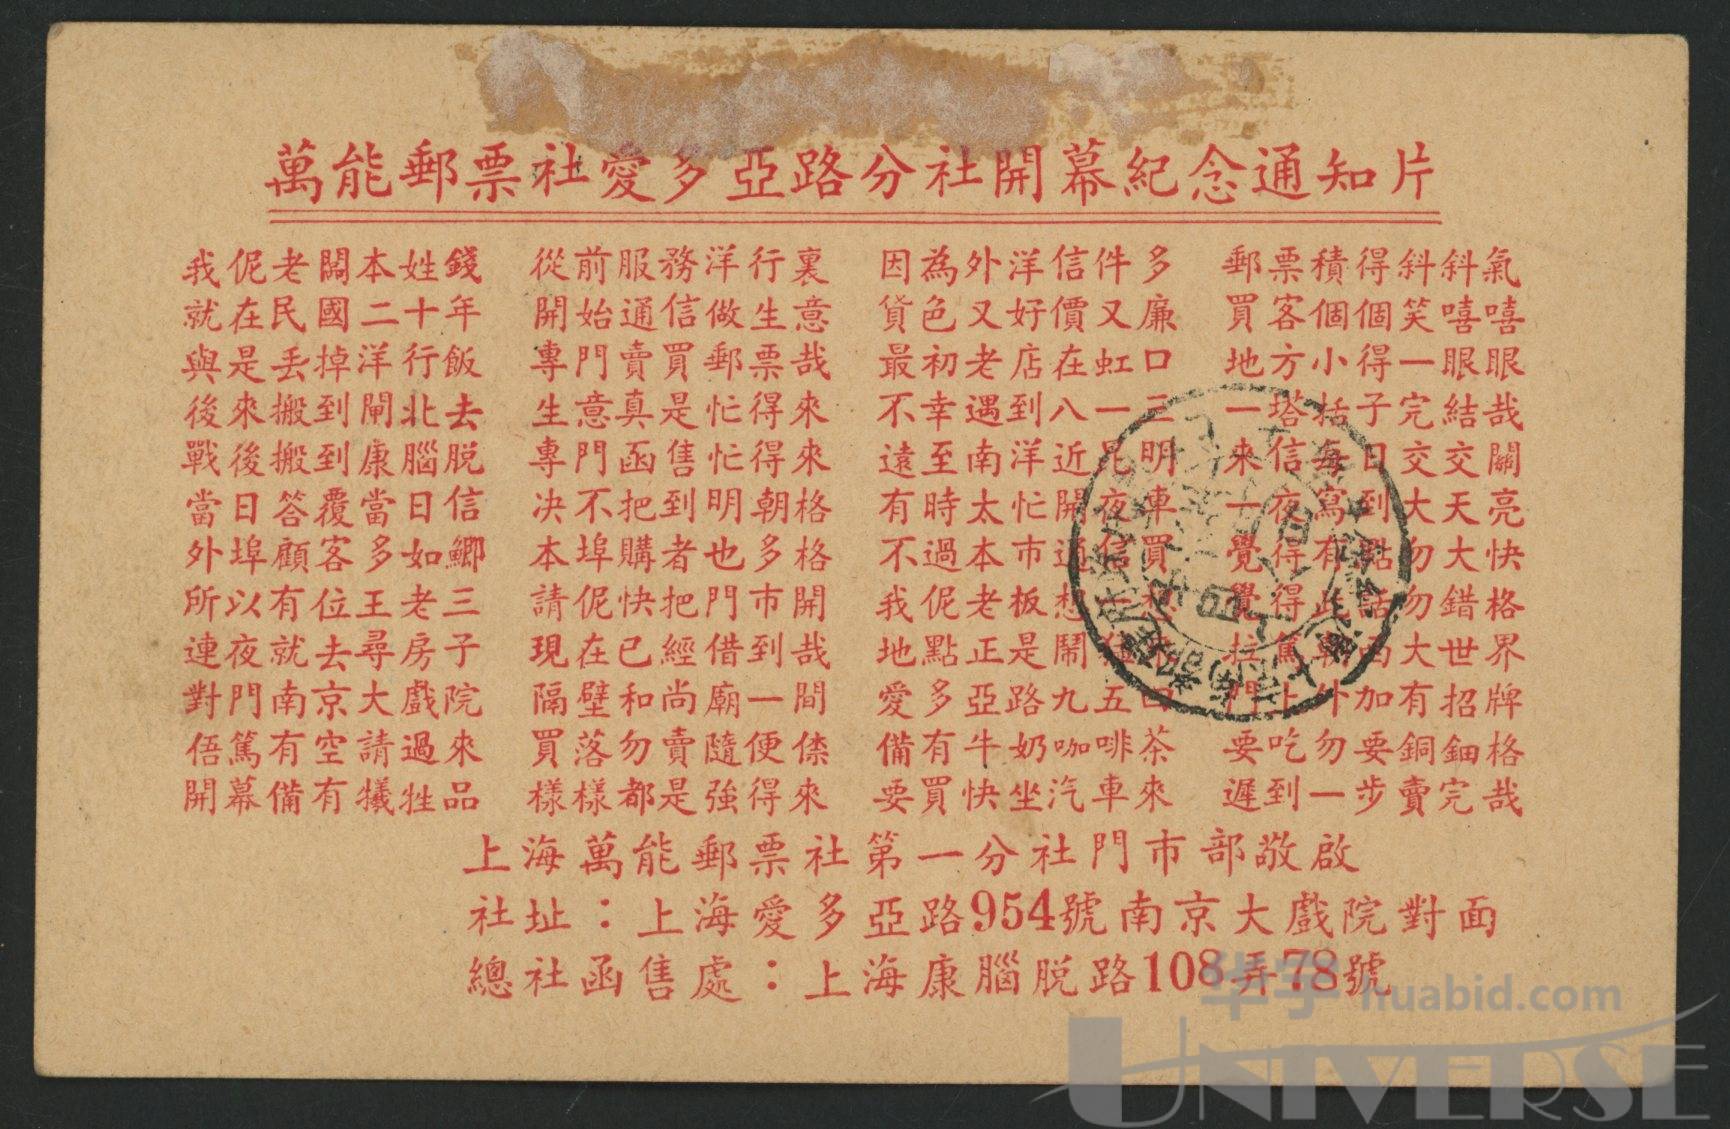 萬能郵票社愛多亞路分社開幕紀念通知片
我伲老闆本姓錢 從前服務洋行裏 因為外洋信件多 郵票積得斜斜氣
就在民國二十年 開始通信做生意 貨色又好價又廉 買客個個笑嘻嘻
與是丢掉洋行飯 專門賣買郵票哉 最初老店在虹口 地方小得一眼眼
後來搬到閘北去 生意真是忙得來 不幸遇到八一三 一塔括子完結哉
戰後搬到康腦脱 專門函售忙得來 遠至南洋近昆明 來信每日交交關
當日答覆當日信 决不把到明朝格 有時太忙開夜車 一夜寫到大天亮
外埠顧客多如鯽 本埠購者也多格 不過本市通信買 覺得有點勿大快
所以有位王老三 請伲快把門市開 我伲老板想一想 覺得此話勿錯格
連夜就去尋房子 現在已經借到哉 地點正是鬧 大世界
對門南京大戲院 隔壁和尚廟一間 愛多亞路九五四 門上外加有招牌
俉篤有空請過來 買落勿賣隨便倷 備有牛奶咖啡茶 要吃勿要銅鈿格
開幕備有犧牲品 樣樣都是強得來 要買快坐汽車來 遲到一步賣完哉
上海萬能郵票社第一分社門市部敬啟
社址：上海愛多亞路954號南京大戲院對面
總社函售處：上海康腦脱路108弄78號
华宇 huabid.com
UNIVERSE